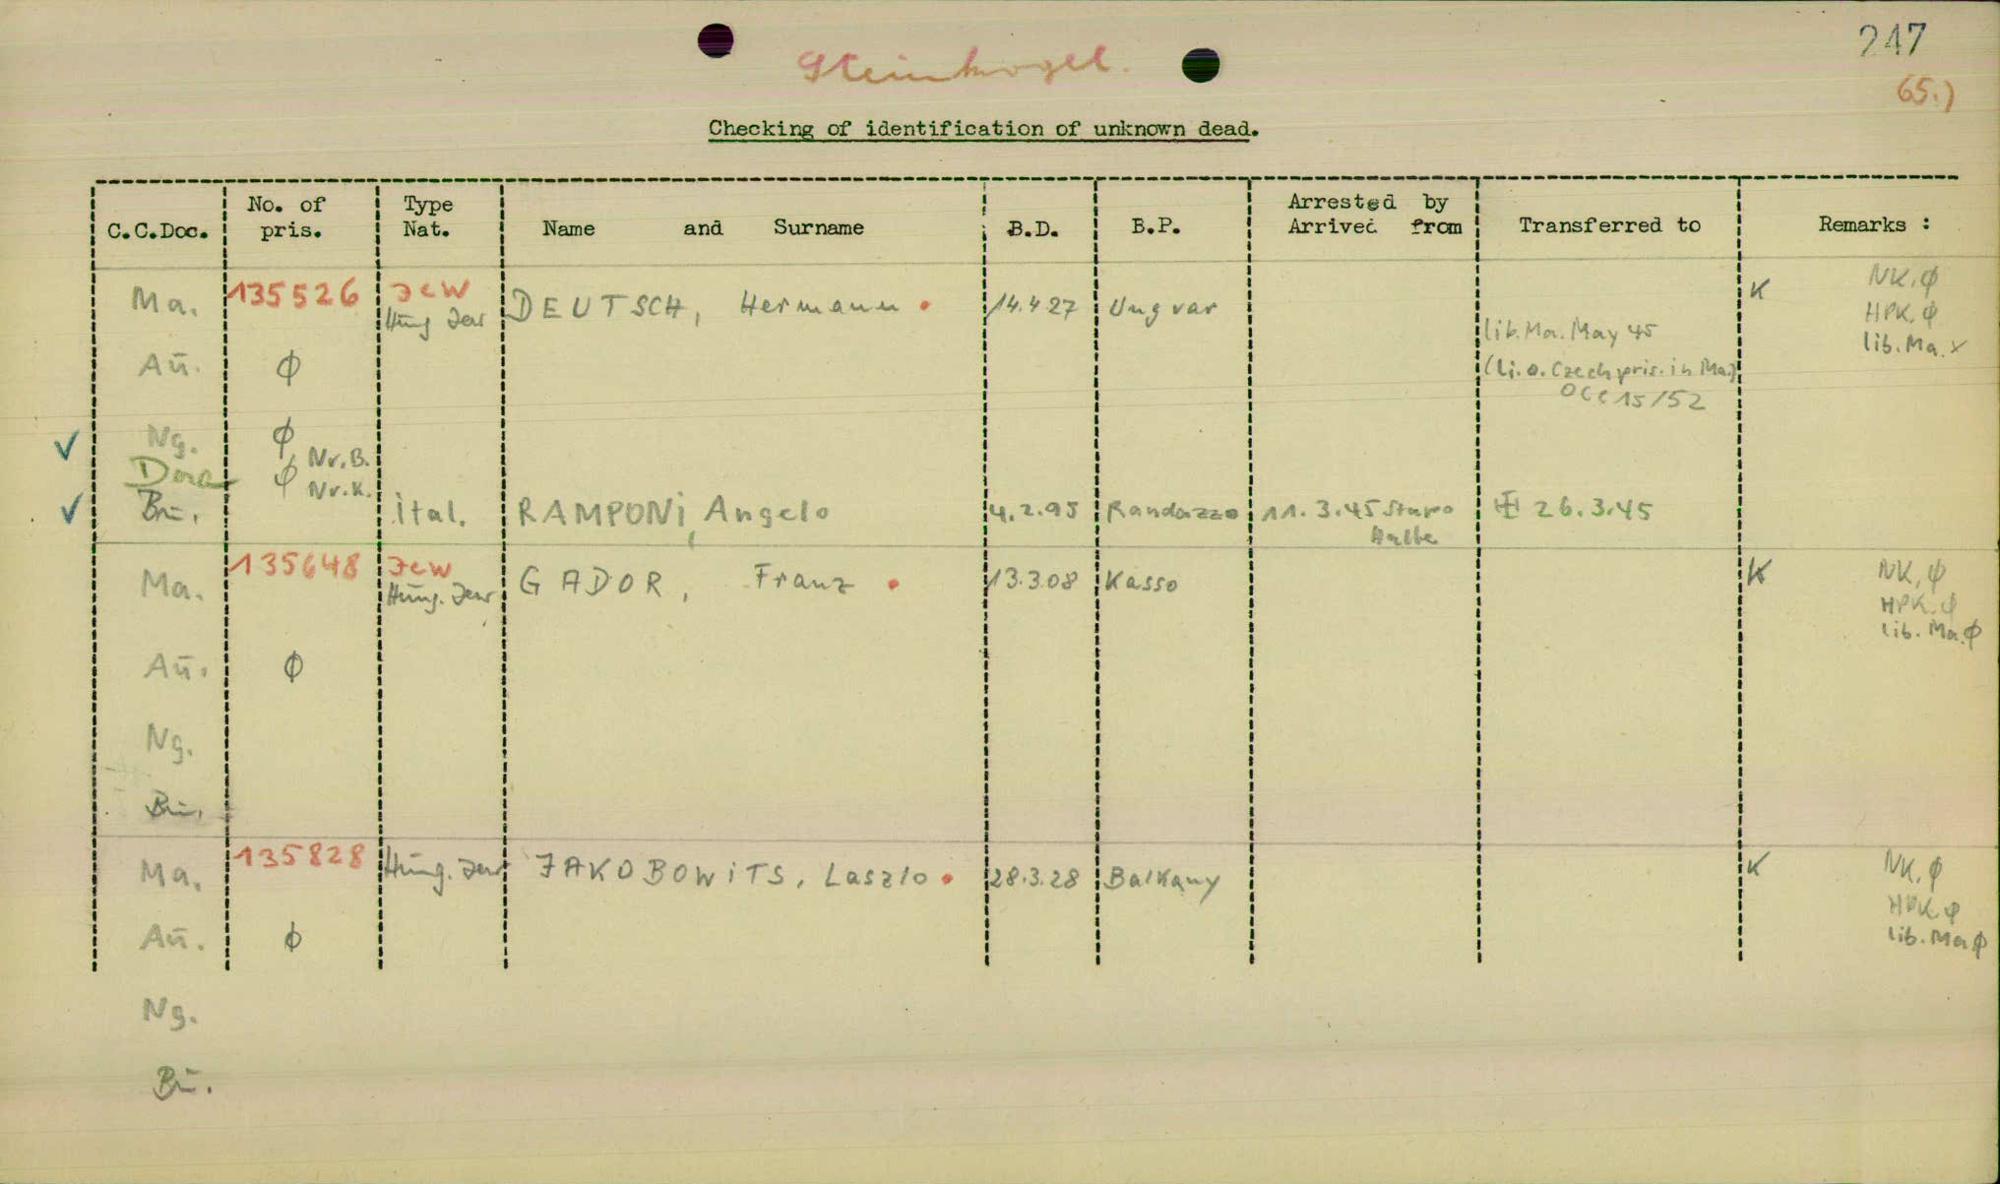 247
Steinkogel.
65.)
Checking of identification of unknown dead.
C.C.Doc. No. of pris. Type Nat. Name and Surname B.D. B.P. Arrested by Arrived from Transferred to Remarks :
Ma. 135526 Jew DEUTSCH, Hermann 14.4.27 Ungvar K NK, φ
Hung Jew HPK. φ
lib. Ma. May 45 lib. Ma. x
Au. φ (li. o. Czech pris. in Ma.)
Occ 15/52
Ng. φ
Nr. B.
Dora φ Nr. K.
Bu. Ital. RAMPONI, Angelo 4.2.95 Randazzo 11.3.45 26.3.45
Ma. 135648 Jew GADOR, Franz 13.3.08 Kasso K NK, φ
Hung. Jew HPK. φ
lib. Ma. φ
Au. φ
Ng.
Bu.
Ma. 135828 Hung. Jew JAKOBOWITS, Laszlo 28.3.28 Balkany K NK. φ
HPK φ
Au. φ lib. Ma φ
Ng.
Bu.